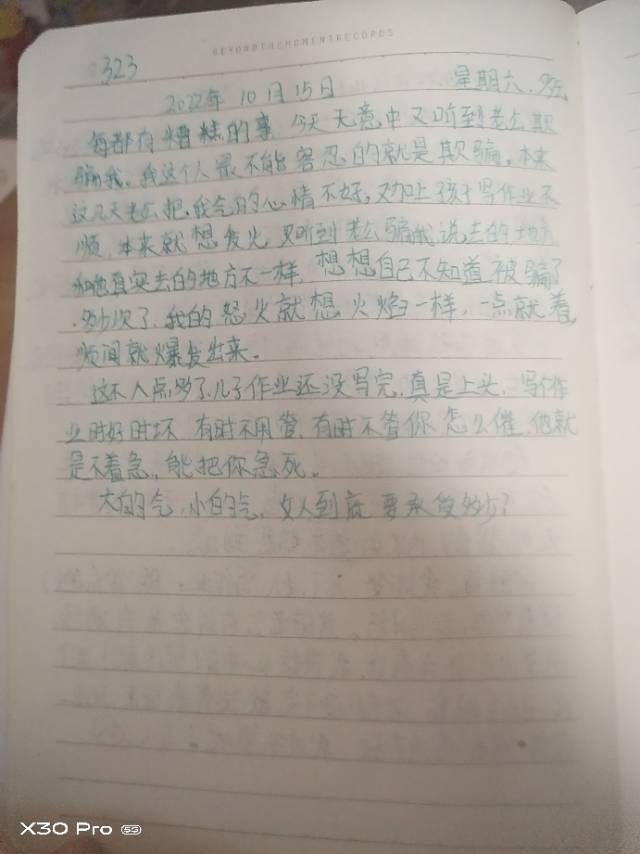 BEYONDTHEMOMENTRECORDS
323
2022年10月15日 星期六.多云
每都有糟糕的事 今天无意中又听到老公欺
骗我。我这个人最不能容忍的就是欺骗。本来
这几天老公把我气的心情不好。又加上孩子写作业不
顺，本来就想发火 又听到老公骗我说去的地方
和他真实去的地方不一样，想想自己不知道被骗了
多少次了，我的怒火就想火焰一样，一点就着。
顺间就爆发出来。
这不八点多了儿子作业还没写完，真是上头，写个作
业时好时坏 有时不用管，有时不管你怎么催，他就
是不着急，能把你急死。
大的气，小的气，女人到底要承受多少？
X30 Pro 5G